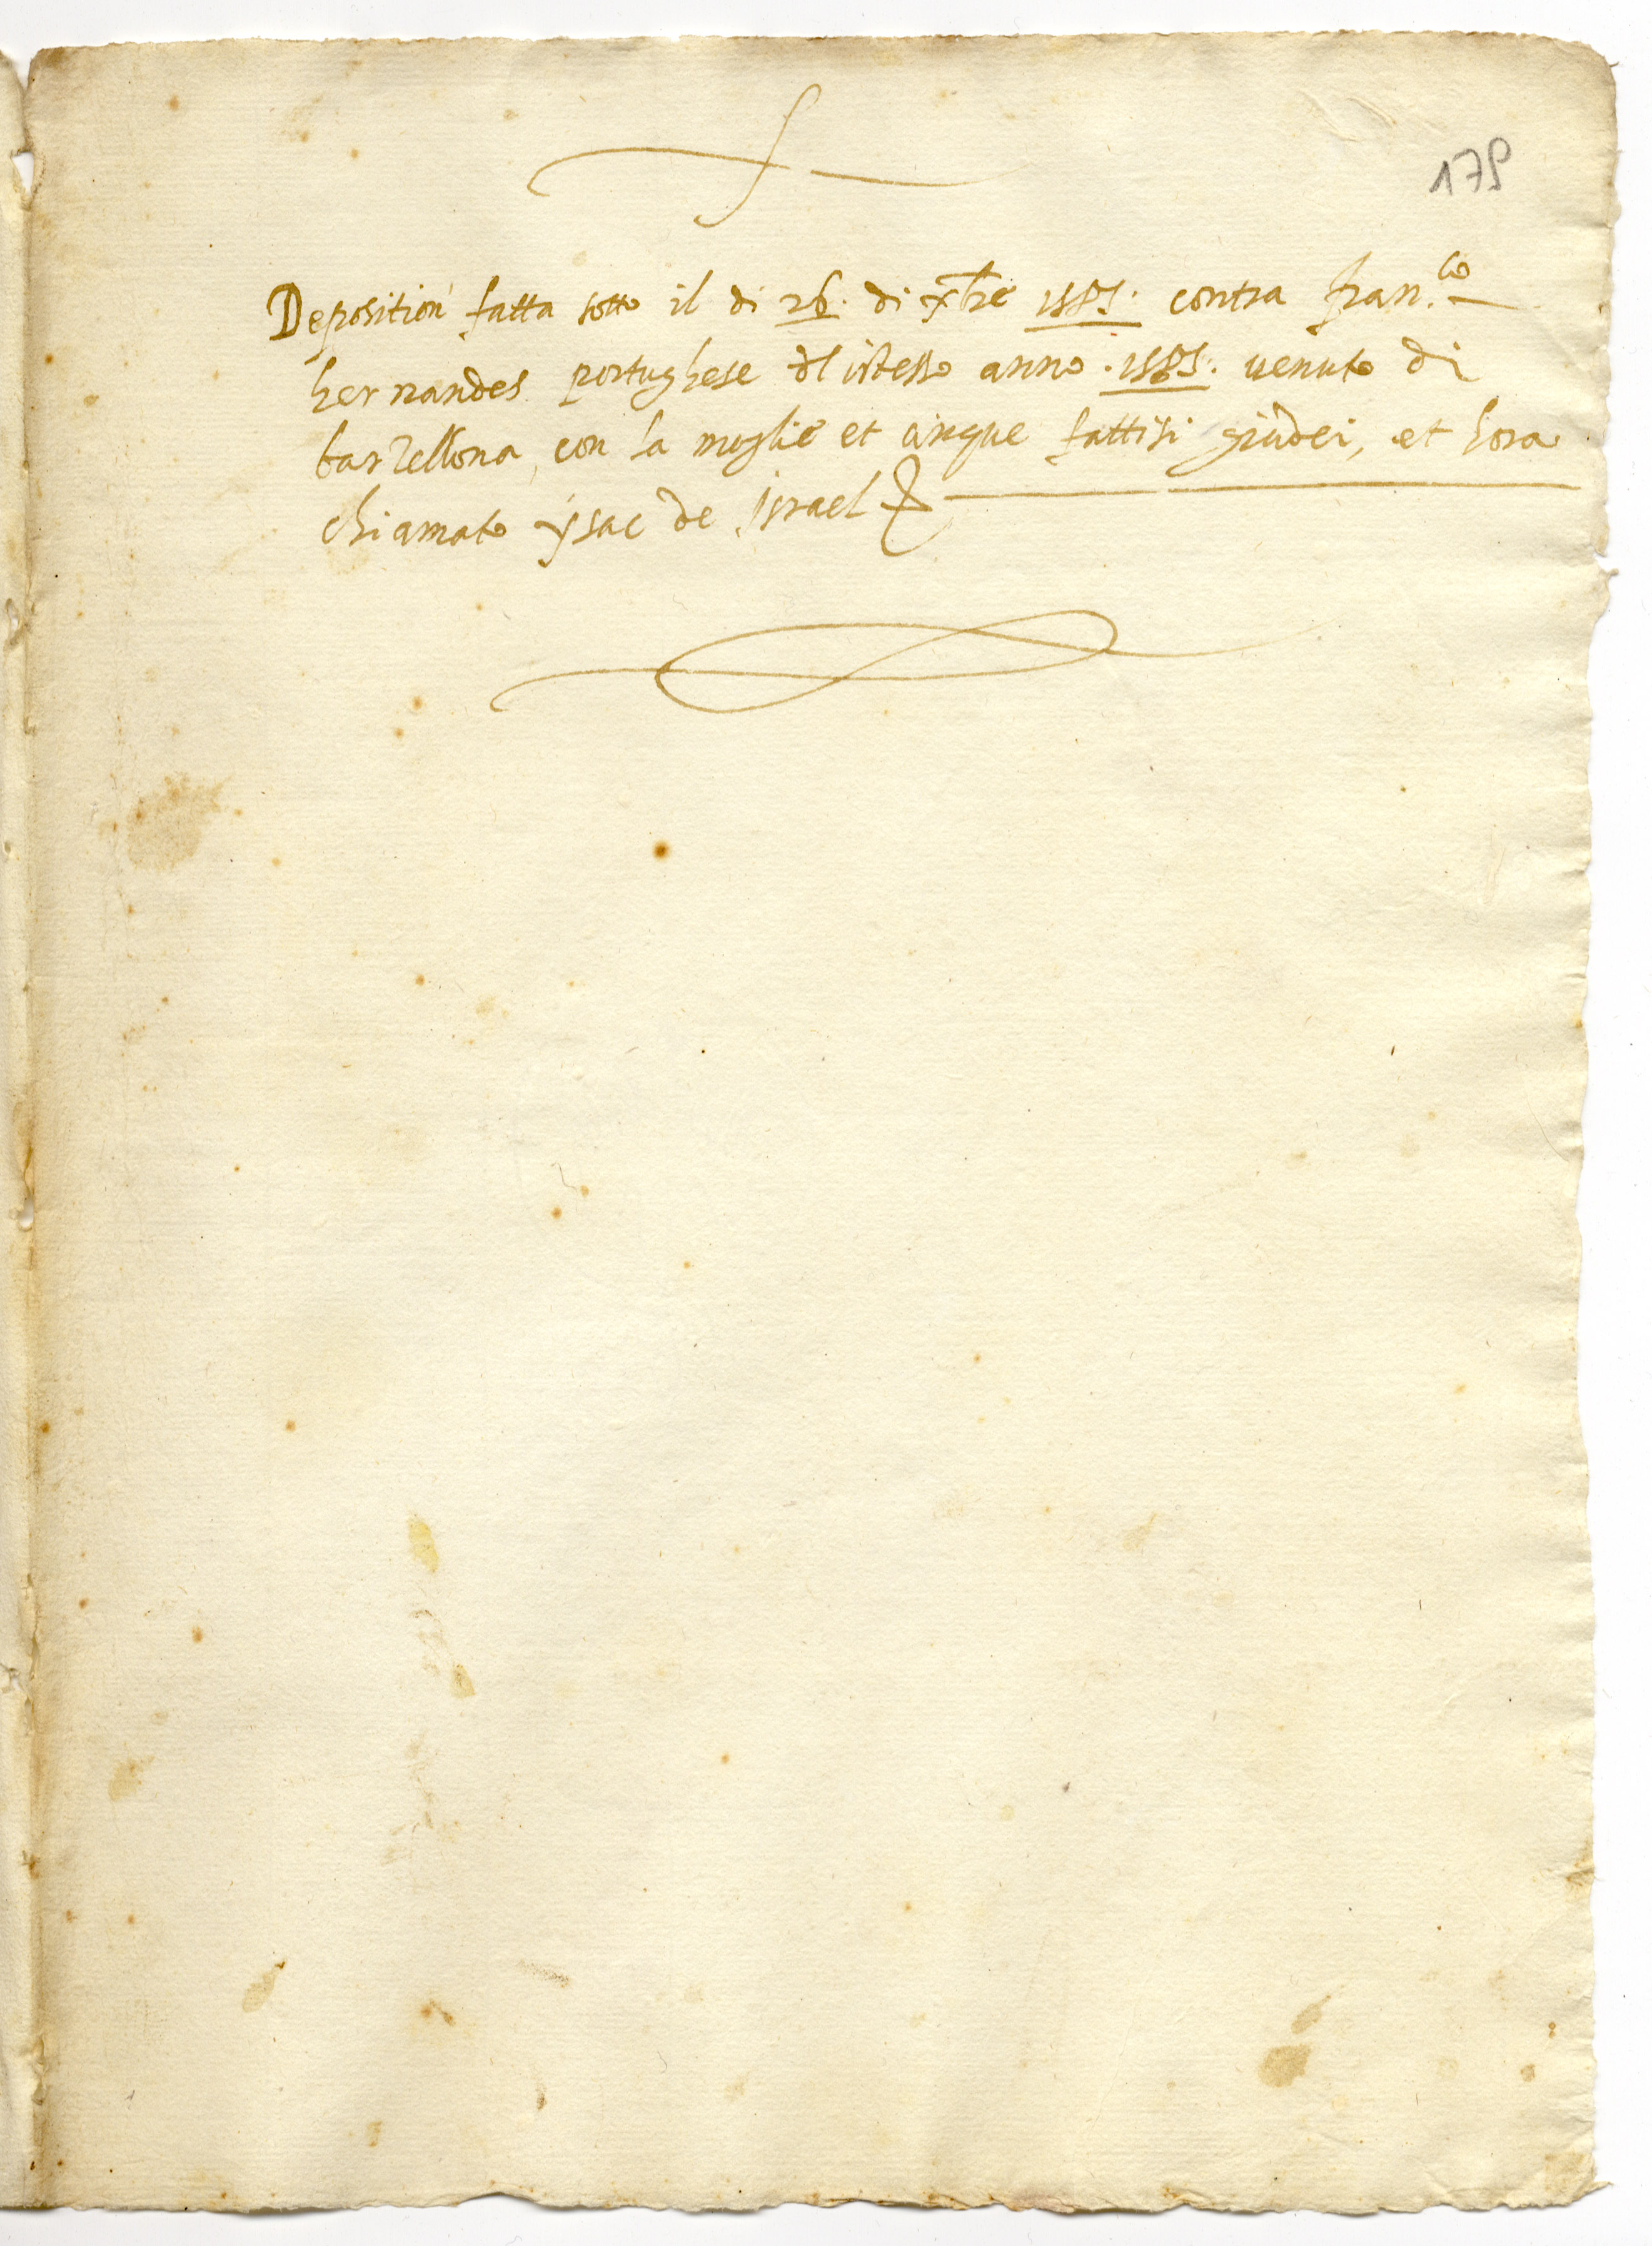 179
Deposition fatta sotto il di 26. di xbre 1585. contra fran.co
hernandes portughese dl istesso anno .1585. uenuto di
barzellona, con la moglie et cinque fattisi giudei, et hora
chiamato ysac de israel